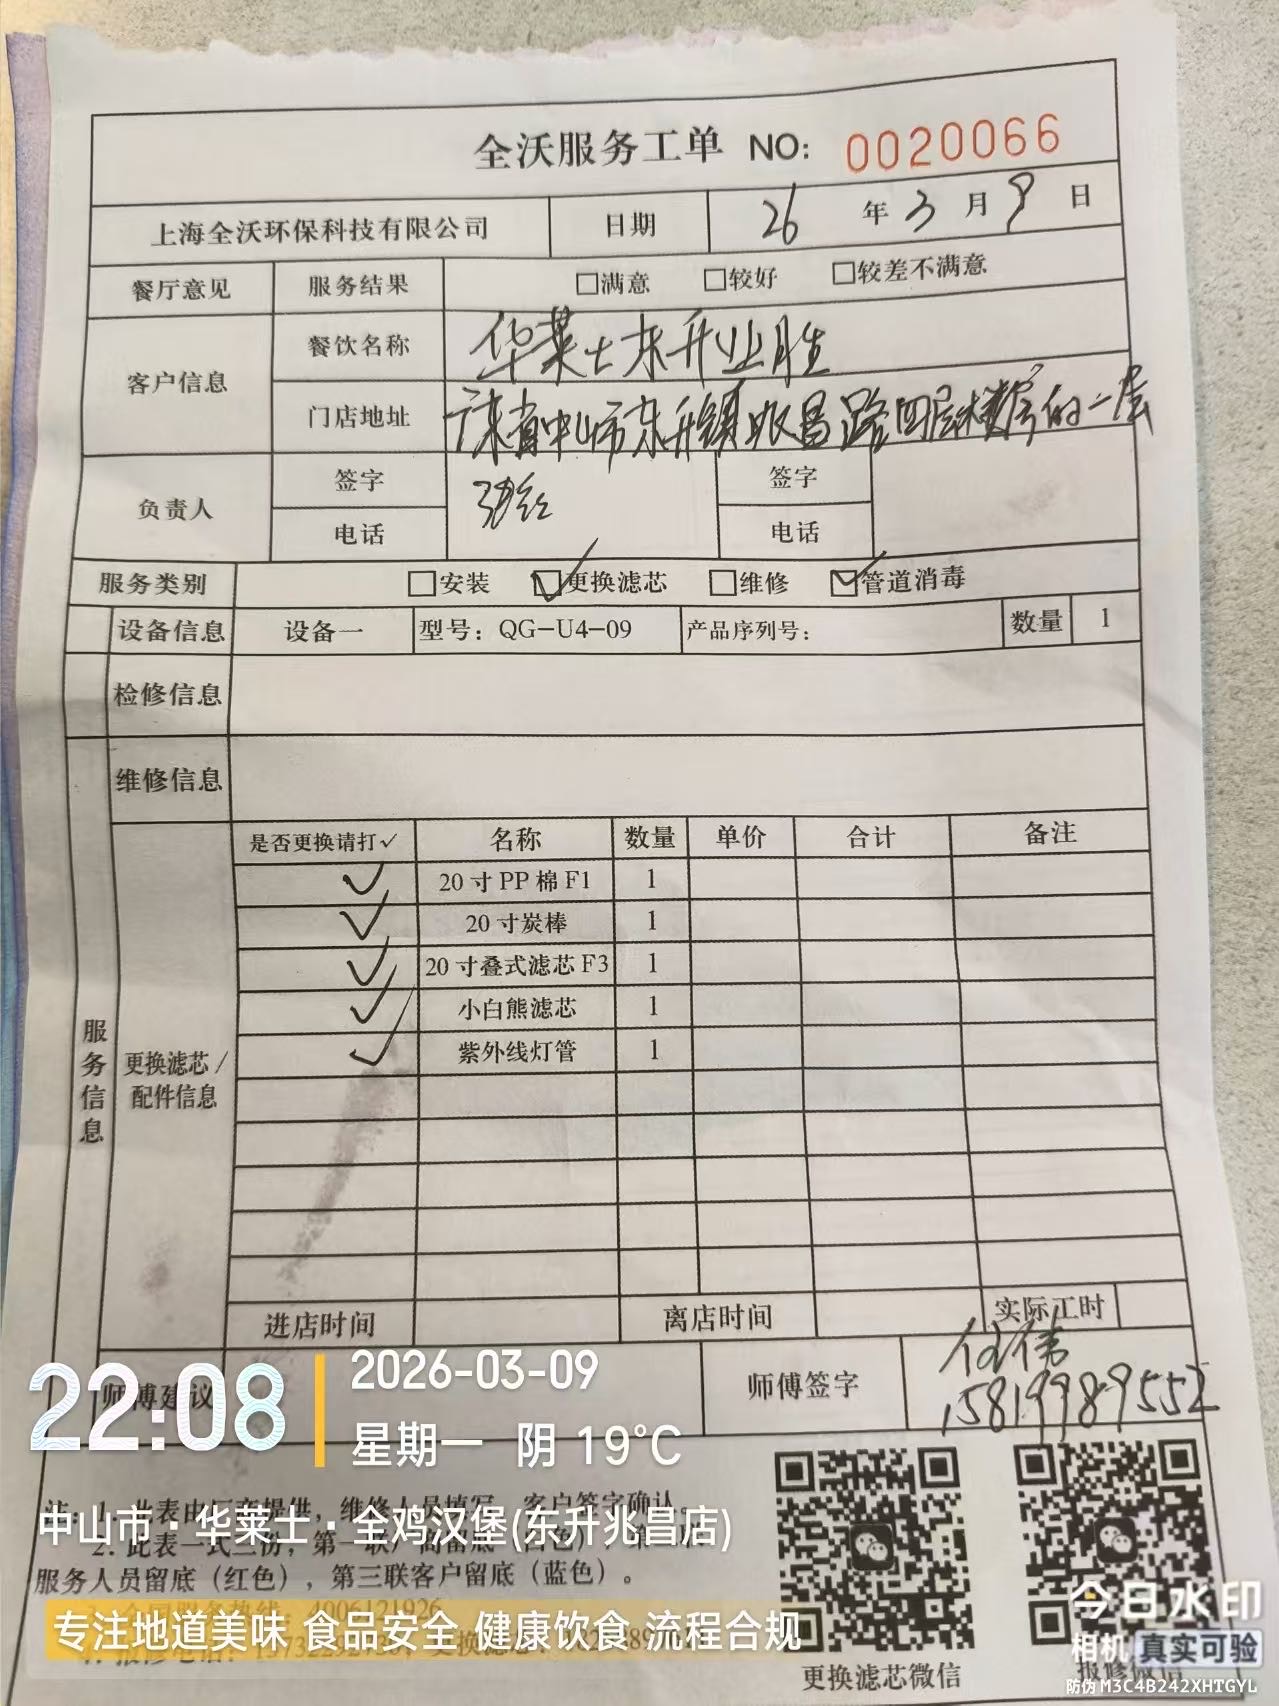 全沃服务工单 NO: 0020066
上海全沃环保科技有限公司 日期 26 年 3 月 9 日
餐厅意见 服务结果 □满意 □较好 □较差不满意
客户信息 餐饮名称 华莱士东升业胜
门店地址 广东省中山市东升镇兆昌路四层楼房的一层
负责人 签字 签字
电话 电话
服务类别 □安装 ☑更换滤芯 □维修 ☑管道消毒
设备信息 设备一 型号：QG-U4-09 产品序列号： 数量 1
检修信息
维修信息
服务信息 更换滤芯/配件信息
是否更换请打✓ 名称 数量 单价 合计 备注
✓ 20寸PP棉F1 1
✓ 20寸炭棒 1
✓ 20寸叠式滤芯F3 1
✓ 小白熊滤芯 1
✓ 紫外线灯管 1
进店时间 离店时间 实际工时
师傅建议 师傅签字
15819989552
22:08 2026-03-09
星期一 阴 19°C
注：1. 此表由厂商提供，维修人员填写，客户签字确认。
中山市·华莱士·全鸡汉堡(东升兆昌店)
2. 此表一式三份，第一联厂商留底（白色），第二联
服务人员留底（红色），第三联客户留底（蓝色）。
全国服务热线：4006121926
专注地道美味 食品安全 健康饮食 流程合规
更换滤芯微信 报修微信
今日水印
相机 真实可验
防伪 M3C4B242XHTGYL